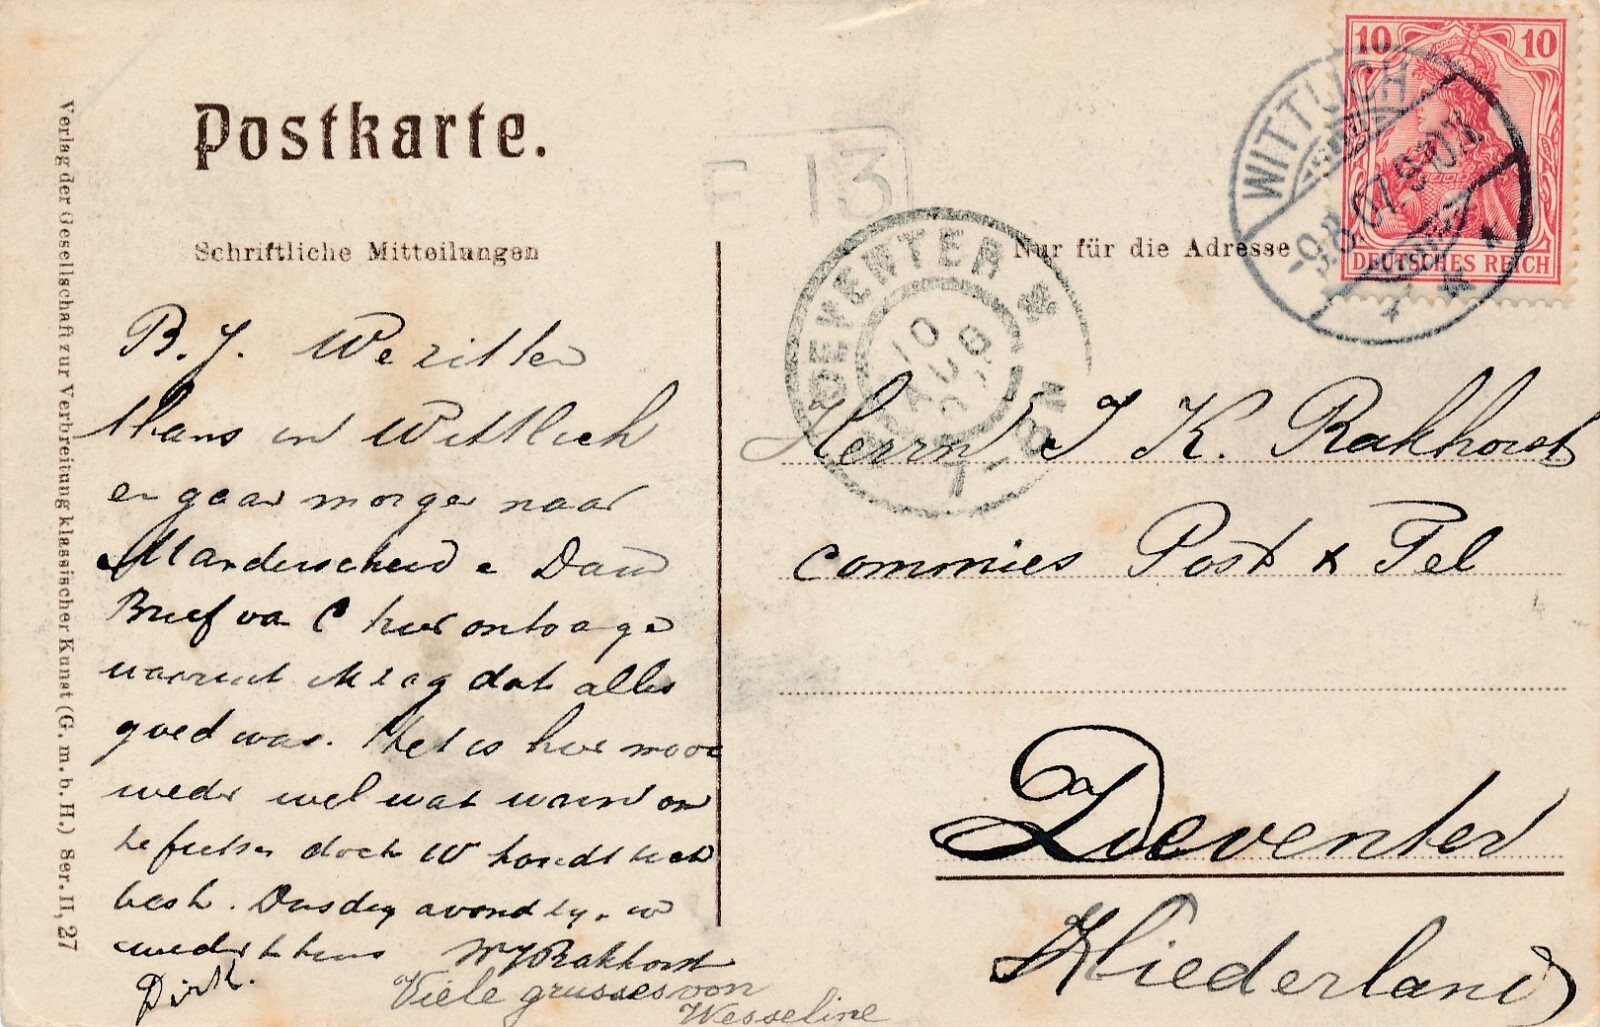 Postkarte.
Schriftliche Mitteilungen
Nur für die Adresse
Verlag der Gesellschaft zur Verbreitung klassischer Kunst (G. m. b. H.) Ser. II, 27
10 10
DEUTSCHES REICH
WITTLICH
9.8.07.
F 13
DEVENTER
10 AUG
B. J. We zitten
thans in Wittlich
en gaan morgen naar
Manderscheid en Daun
Brief van C hier ontvange
waaruit ik zag dat alles
goed was. Het is hier mooi
weder wel wat warm om
te fietsen doch W houdt zich
best. Dinsdag avond zijn w
weder thuis WJRakhorst
Dirk.
Viele grusses von
Wesseline
Herrn J K. Rakhorst
commies Post & Tel
Deventer
Niederland